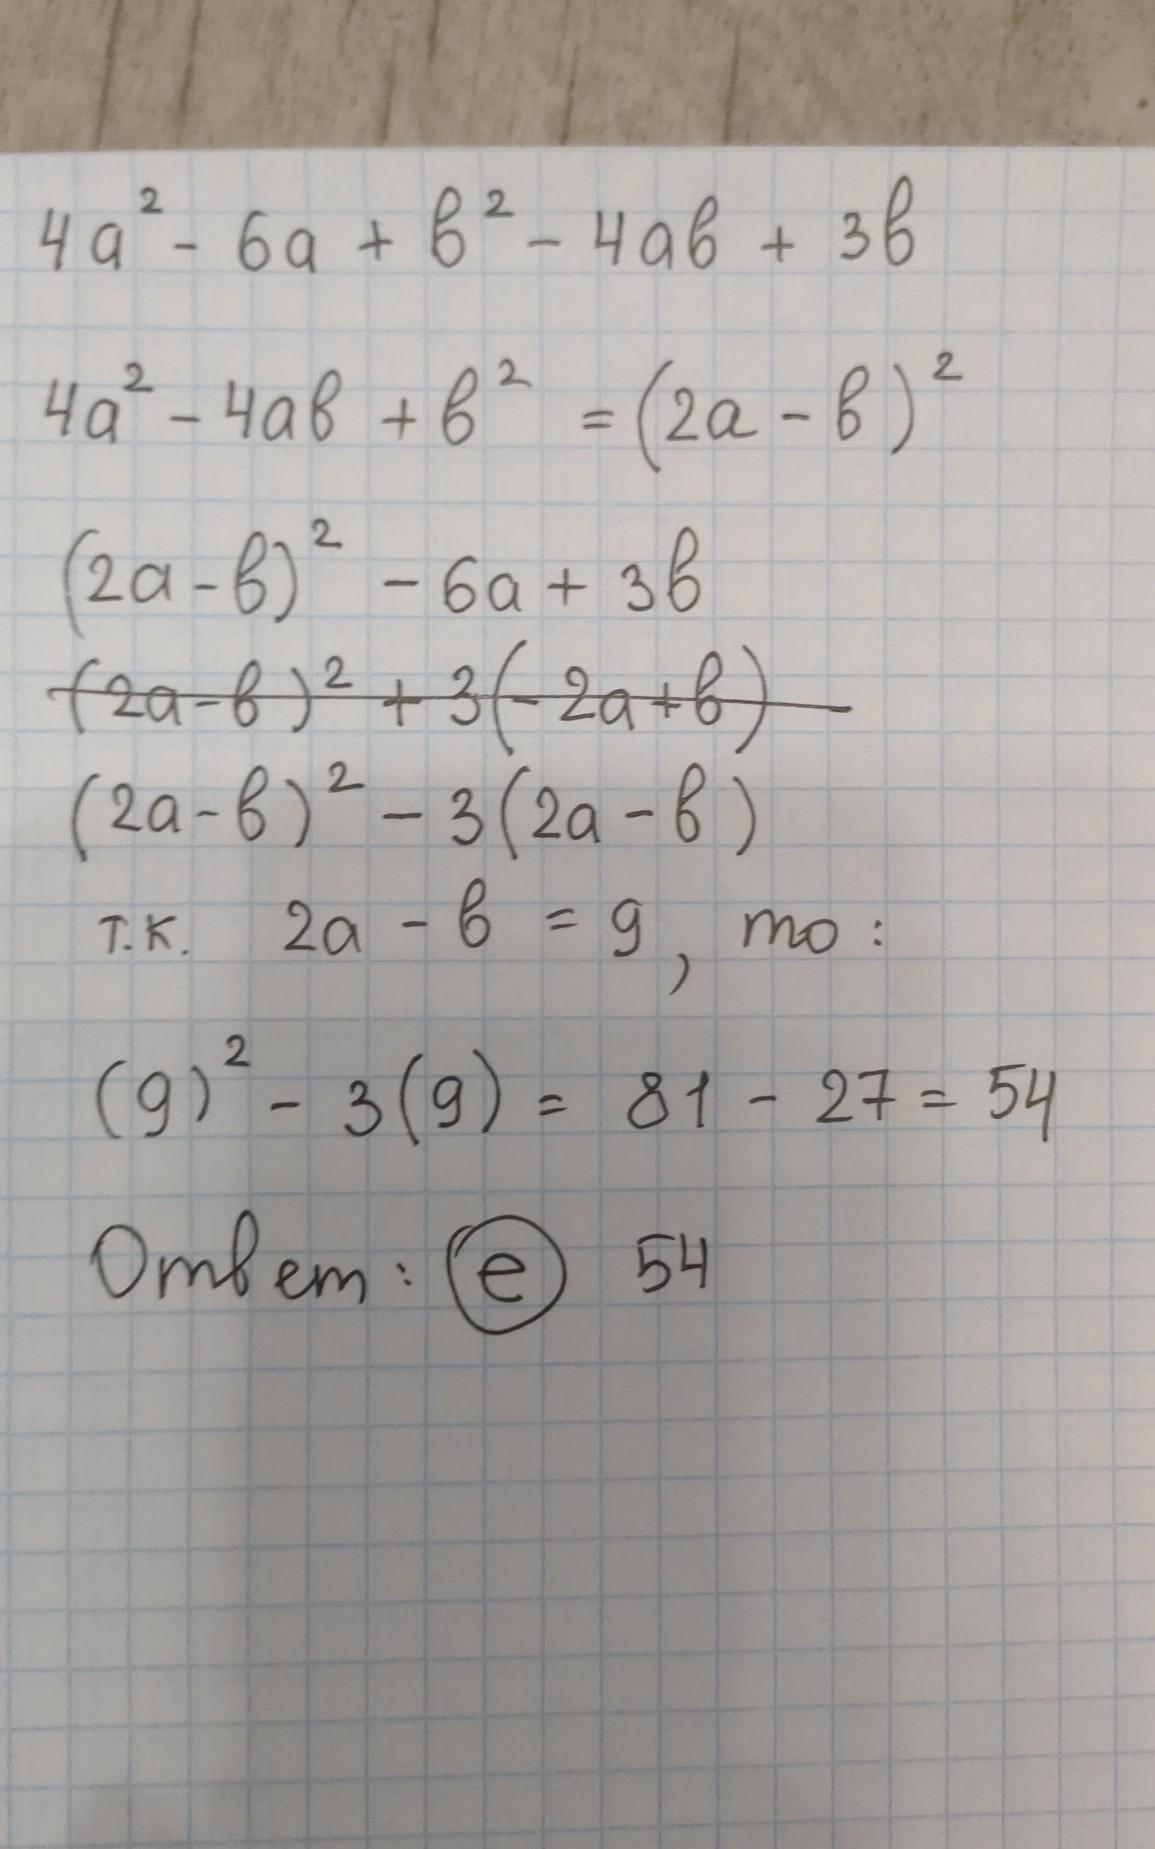 4а² - 6а + в² - 4ав + 3в
4а² - 4ав + в² = (2а - в)²
(2а - в)² - 6а + 3в
(2а - в)² + 3(- 2а + в)
(2а - в)² - 3(2а - в)
т.к. 2а - в = 9, то:
(9)² - 3(9) = 81 - 27 = 54
Ответ: е 54